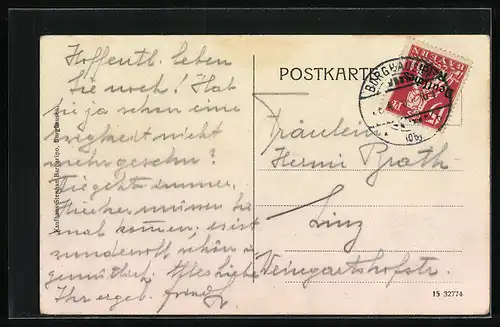 Hoffentl. leben
Sie noch! Hab
Sie ja schon eine
Ewigkeit nicht
mehr gesehn!
Wie geht's immer,
Hieher müssen Sie
mal kommen, es ist
wundervoll schön u.
gemütlich. Alles liebe
Ihr ergeb.
POSTKARTE
BURGHAUSEN
Fräulein
Hermi Brath
Linz
Weingartshofstr.
15 32774